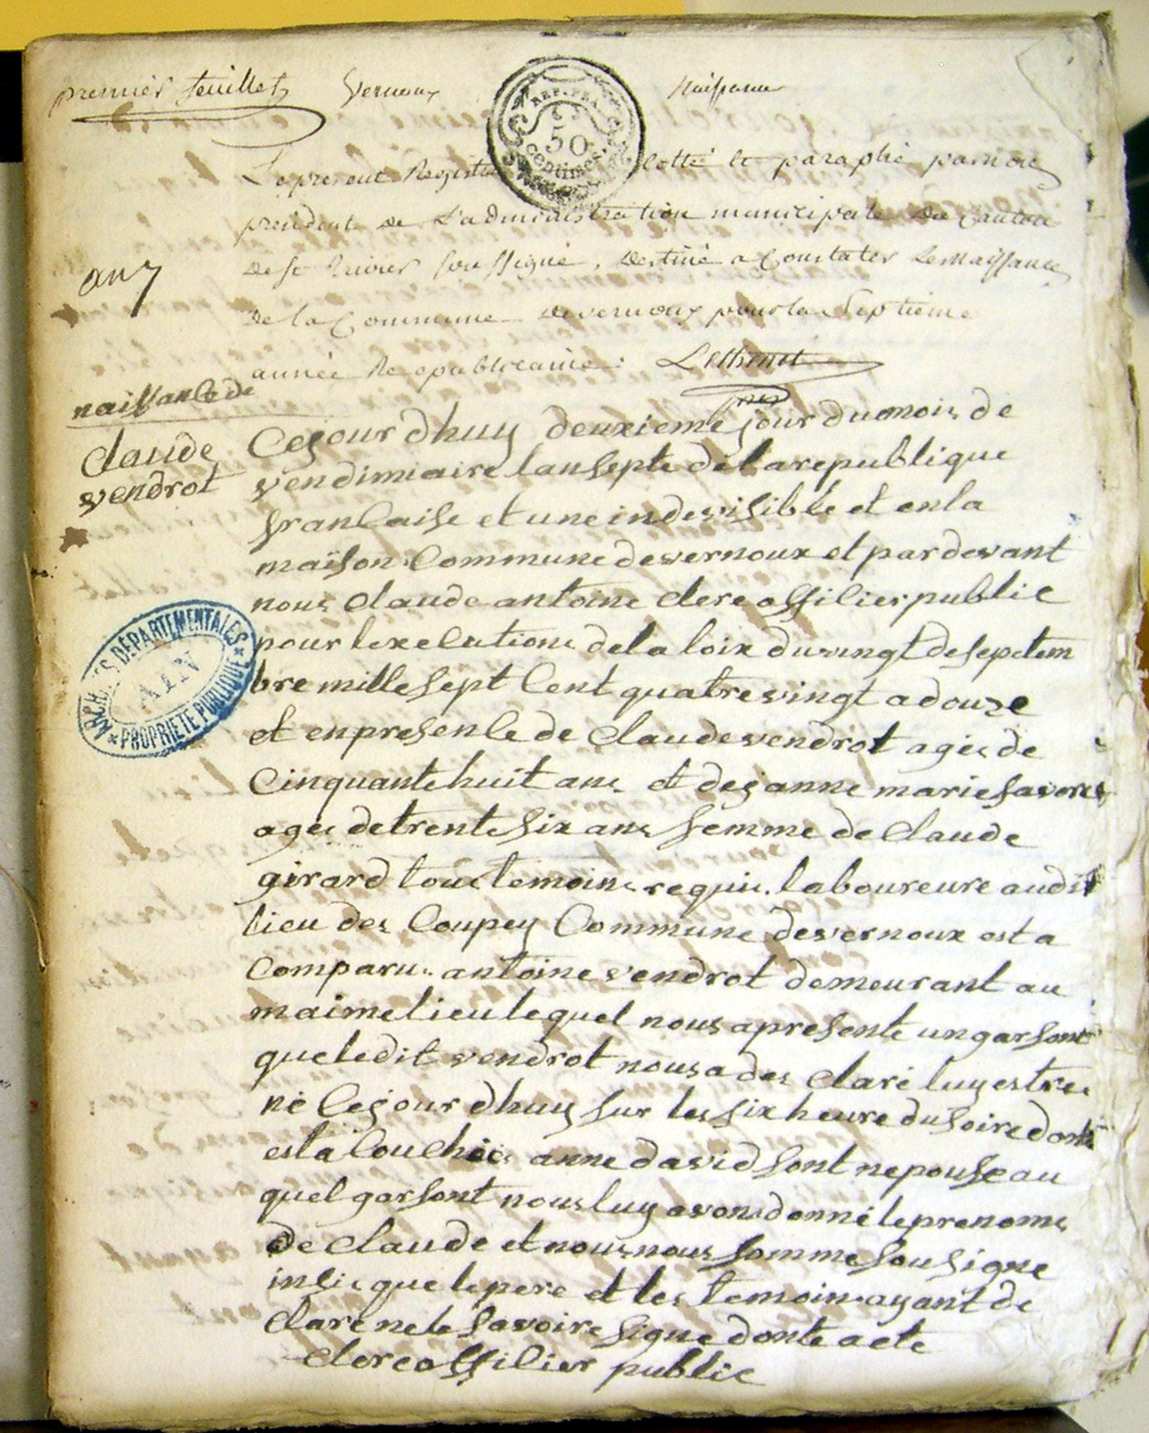 premier feuillet Vernoux Naissance
REP. FRA.
50
centimes
Le present Registre cotté et paraphé par moi
président de L'administration municipale du Canton
de St trivier soussigné, destiné a Constater les Naissances
an 7
de la Commune de vernoux pour la Septieme
année Republicaine.
naissance de
claude
vendrot
Cejourdhuy deuxieme jour dumois de
vendimiaire lansepte dela republique
francaise et une indevisible et enla
maison Commune devernoux et pardevant
nous claude antoine clerc offilier public
pour lexelution dela loix duvingt deseptem
bre mille sept Cent quatrevingt adouze
et enpresenle de claude vendrot agée de
Cinquante huit ans et dejanne marie favores
agée detrente six ans femme de claude
girard tous temoins requis laboureure audit
lieu des Coupey Commune devernoux est a
comparu antoine vendrot demeurant au
maime lieu lequel nous apresente ungarsont
que ledit vendrot nous a des claré luy estre
né Cejourdhuy sur les six heure dusoire dont
esta Couchée anne david sont nepouse au
quel garsont nous luy avons donné leprenoms
de claude et nous nous somme sousigne
insi que lepere et les temoins ayant de
claré nele savoire signe donte acte
clerc offilier public
ARCHIVES DEPARTEMENTALES
AIN
PROPRIETE PUBLIQUE